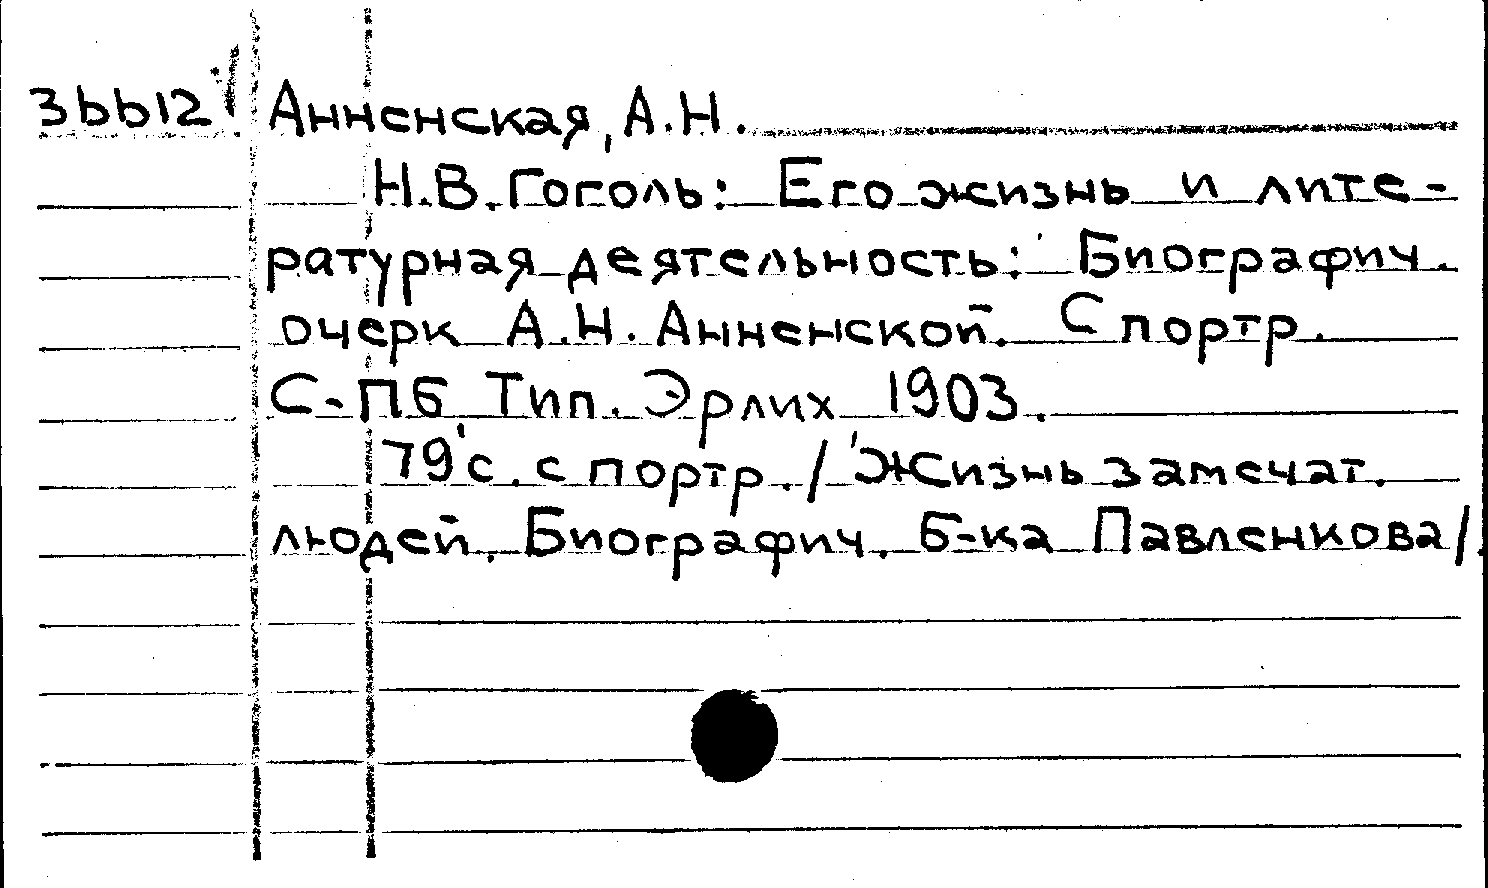 36612 Анненская, А.Н.
Н.В.Гоголь: Его жизнь и лите-
ратурная деятельность: Биографич.
очерк А.Н.Анненской. С портр.
С-Пб Тип. Эрлих 1903.
79 с. с портр. /Жизнь замечат.
людей. Биографич. б-ка Павленкова/.